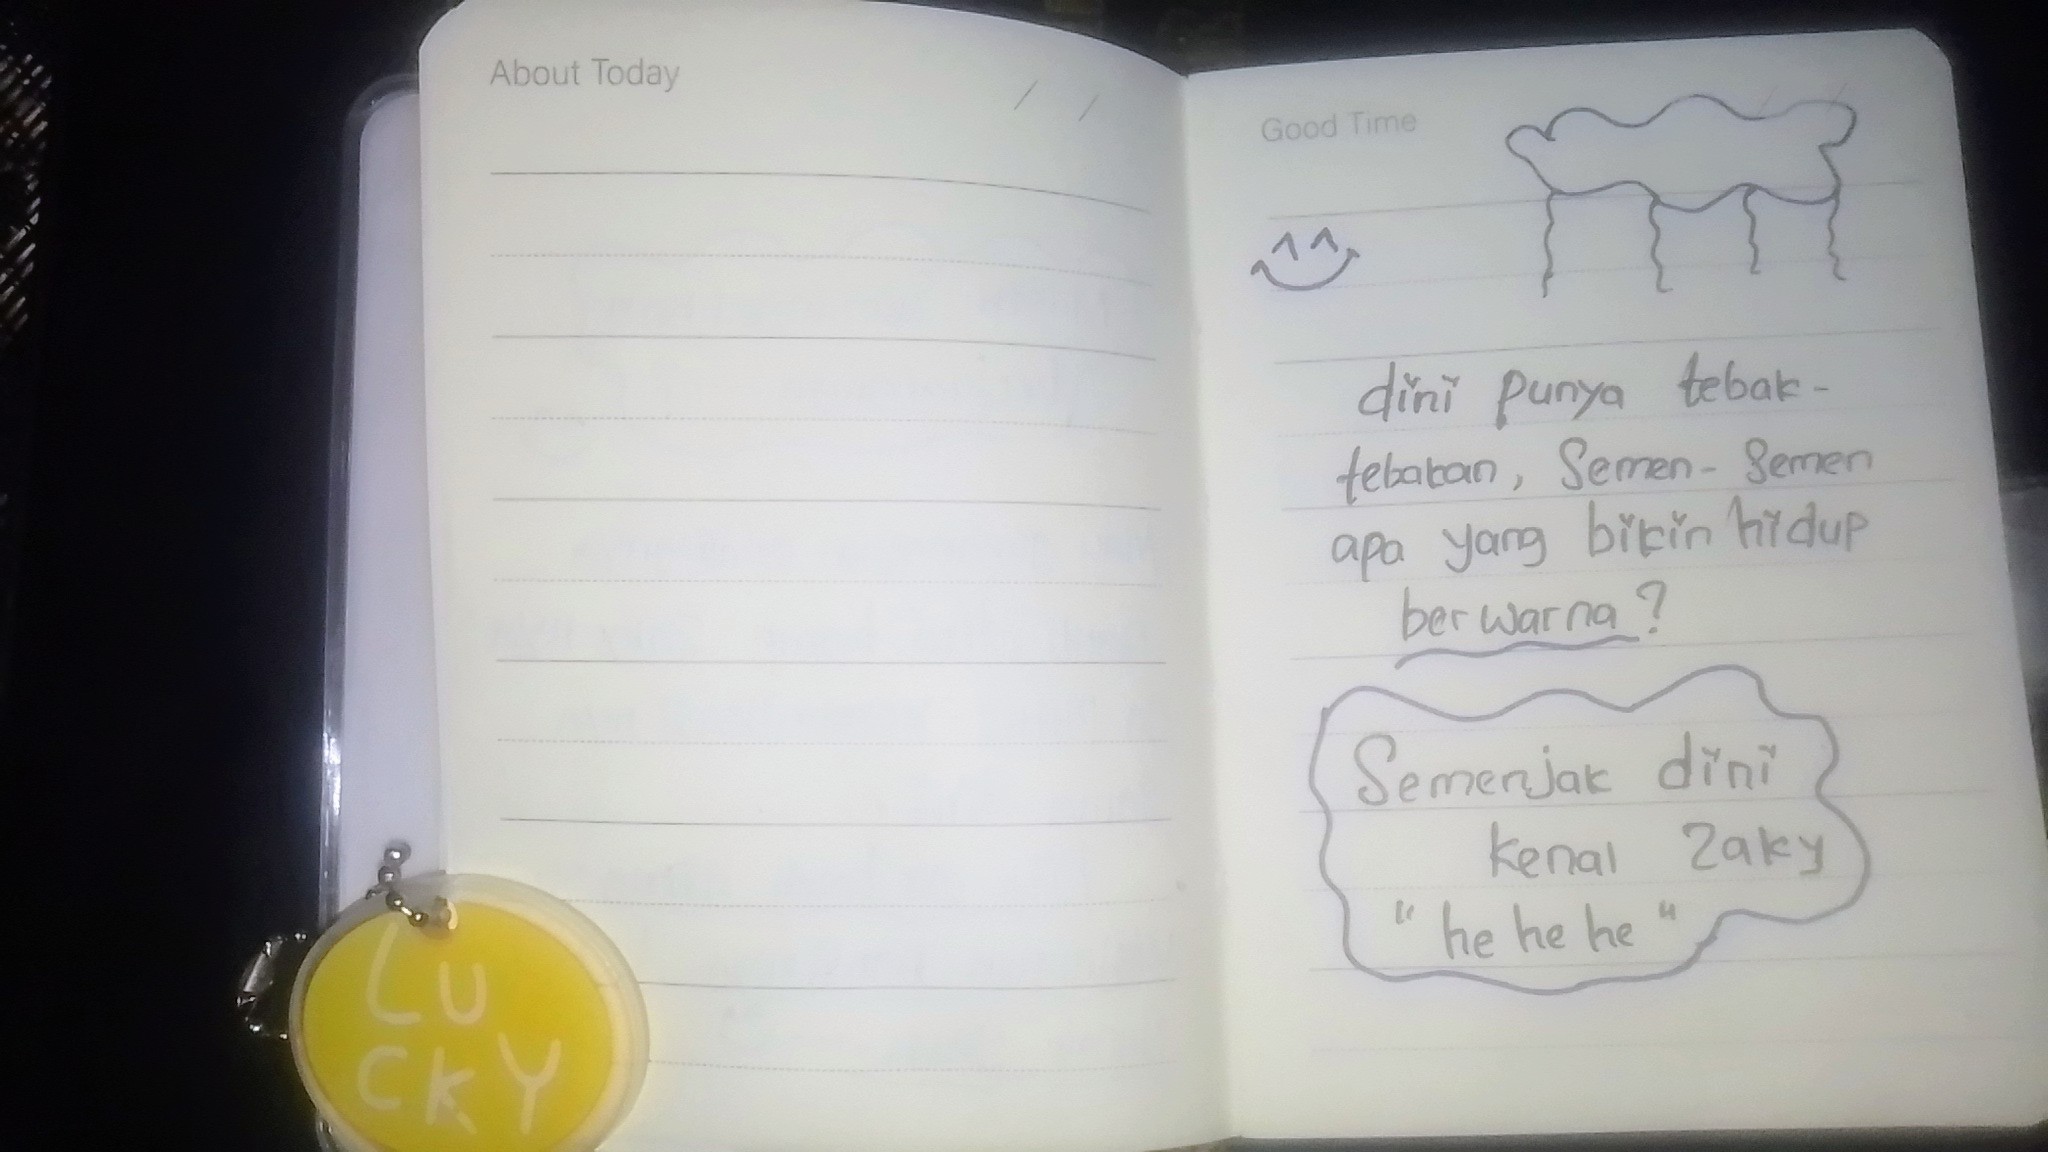 About Today
/ /
Good Time
dini punya tebak-
tebakan, Semen-Semen
apa yang bikin hidup
berwarna?
Semenjak dini
kenal Zaky
"he he he"
LU
CKY